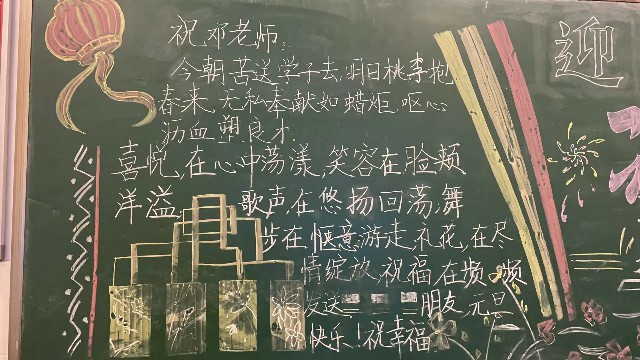 祝邓老师:
今朝苦送学子去,明日桃李抱
春来,无私奉献如蜡炬,呕心
沥血塑良才.
喜悦,在心中荡漾,笑容在脸颊
洋溢,歌声,在悠扬回荡,舞
步在惬意游走,礼花,在尽
情绽放,祝福,在频频
发送 朋友,元旦
快乐!祝幸福
迎